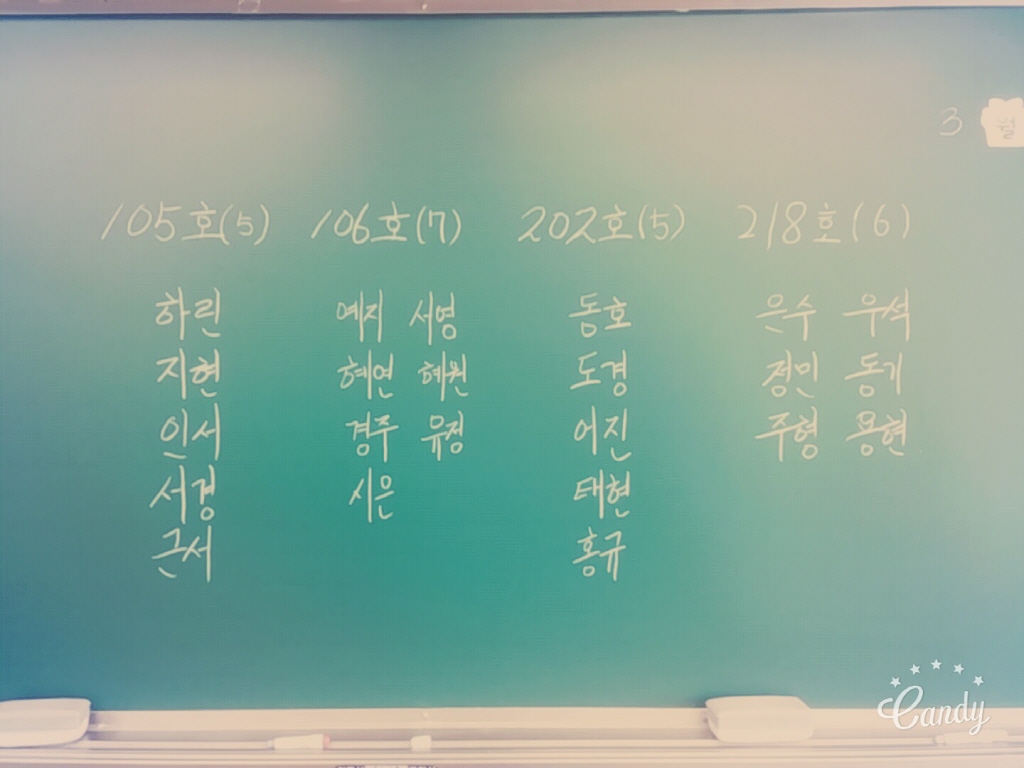 3 월
105호(5) 106호(7) 202호(5) 218호(6)
하린 예지 서영 동호 은수 우석
지현 혜연 혜원 도경 정민 동기
인서 경주 유정 어진 주형 용현
서경 시은 태현
근서 홍규
Candy